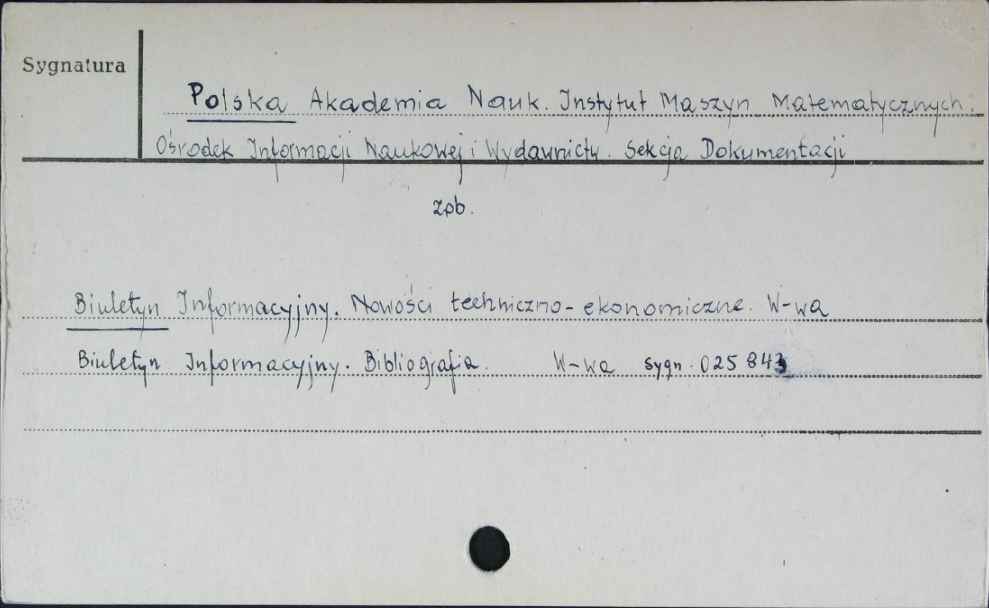 Sygnatura
Polska Akademia Nauk. Instytut Maszyn Matematycznych.
Ośrodek Informacji Naukowej i Wydawnictw. Sekcja Dokumentacji
zob.
Biuletyn Informacyjny. Nowości techniczno-ekonomiczne. W-wa
Biuletyn Informacyjny. Bibliografia. W-wa sygn. 025843